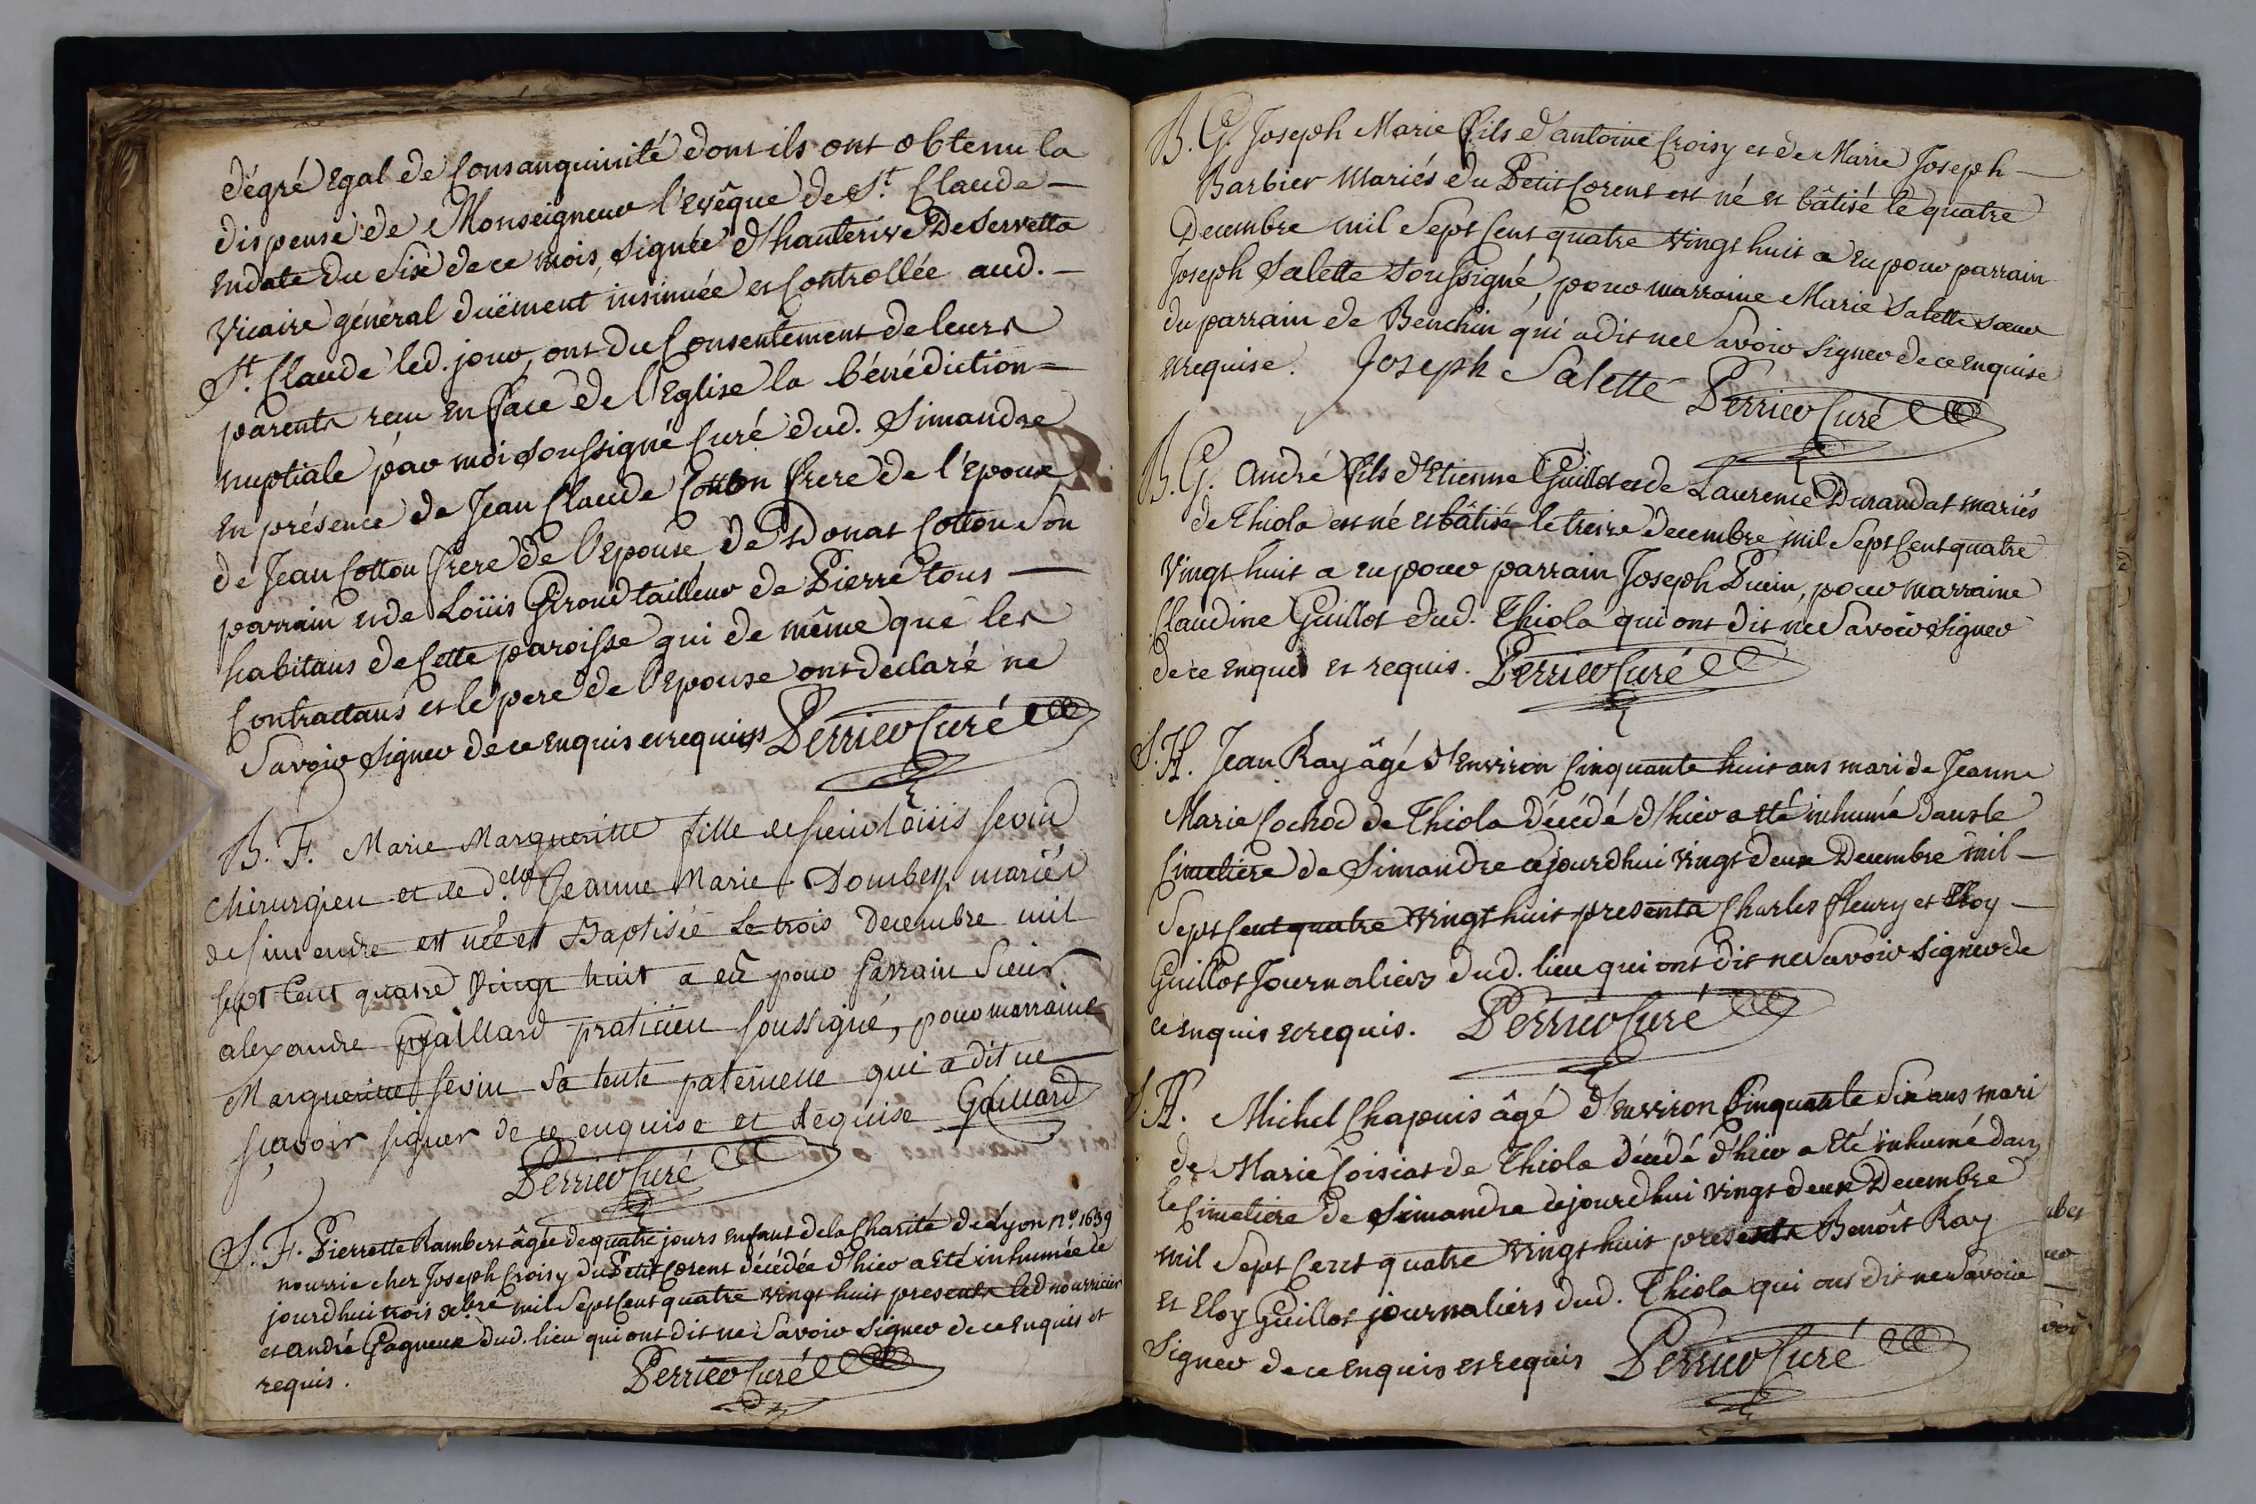 dégré Egal de Consanguinité dont ils ont obtenu la
dispense de Monseigneur l'Evêque de St. Claude —
en date du Sixe de ce mois, signée d'hauterive De Servetta
Vicaire général duëment insinuée et Controllée aud. —
St. Claude led. jour, ont du Consentement de leurs
parents reçu en face de l'Eglise la bénédiction —
nuptiale par moi soussigné Curé dud. Simandre
en présence de Jean Claude Cotton frere de l'Epoux
de Jean Cotton frere de l'Epouse de Donat Cotton son
parrain et de Loüis Giroud tailleur de Pierre tous —
habitans de Cette paroisse qui de même que les
Contractans et le pere de l'Epouse ont declaré ne
Savoir Signer de ce Enquis et requis Perrier Curé
B. F. Marie Margueritte fille de sieur Loüis Sevin
chirurgien et de delle Jeanne Marie Dombey mariés
de Simendre est née et Baptisée Le trois Decembre mil
sept Cent quatre Vingt huit a eü pour parrain Sieur
alexandre gaillard praticien soussigné, pour marraine
Margueritte Sevin sa tente paternelle qui a dit ne
sçavoir signer de ce enquise et Requise Gaillard
Perrier Curé
S. F. Pierrette Rambert âgée de quatre jours Enfant de la Charité de Lyon n.º 1639
nourrie chez Joseph Croisy du Petit Corent décédée d'hier a Eté inhumée ce
jourdhui trois xbre mil Sept Cent quatre Vingt huit presents led nourricier
et andré Gagneux dud. lieu qui ont dit ne Savoir Signer de ce Enquis et
requis. Perrier Curé
B. G. Joseph Marie fils d'antoine Croisy et de Marie Joseph —
Barbier Mariés du Petit Corent est né et bâtisé le quatre
Decembre mil Sept Cent quatre Vingt huit a Eu pour parrain
Joseph Salette Soussigné, pour marraine Marie Salette Soeur
du parrain de Benchin qui a dit ne Savoir Signer de ce Enquise
et requise. Joseph Salette Perrier Curé
B. G. andré fils d'Etienne Guillot et de Laurence Durandat mariés
de Thiola est né et bâtisé le treize Decembre mil Sept Cent quatre
Vingt huit a Eu pour parrain Joseph Puvin, pour marraine
Claudine Guillot dud. Thiola qui ont dit ne Savoir Signer
de ce Enquis et requis. Perrier Curé
S. H. Jean Ray âgé d'Environ Cinquante huit ans mari de Jeanne
Marie Cochod de Thiola décédé d'hier a Eté inhumé dans le
Cimetiere de Simandre cejourdhui vingt deux Decembre mil —
Sept Cent quatre Vingt huit presents Charles fleury et Eloy —
Guillot Journaliers dud. lieu qui ont dit ne Savoir Signer de
ce Enquis et requis. Perrier Curé
S. H. Michel Chapuis âgé d'Environ Cinquante Six ans mari
de Marie Coisiat de Thiola décédé d'hier a Eté inhumé dans
le Cimetiere de Simandre cejourdhui vingt deux Decembre
mil Sept Cent quatre Vingt huit presents Benoît Ray
et Eloy Guillot journaliers dud. Thiola qui ont dit ne Savoir
Signer de ce Enquis et requis Perrier Curé